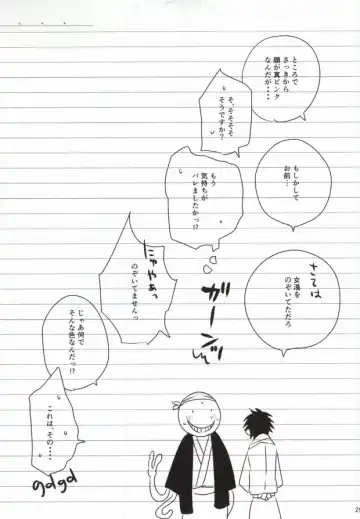 ところで
さっきから
顔が真ピンク
なんだが・・・・
そ、そそそそ
そうですか？
もしかして
お前…
もう
気持ちが
バレましたかっ!?
さては
女湯を
のぞいてただろ
ガーン
にゅやあっ
のぞいてませんっ
じゃあ何で
そんな色なんだっ!?
これは、その・・・・
gdgd